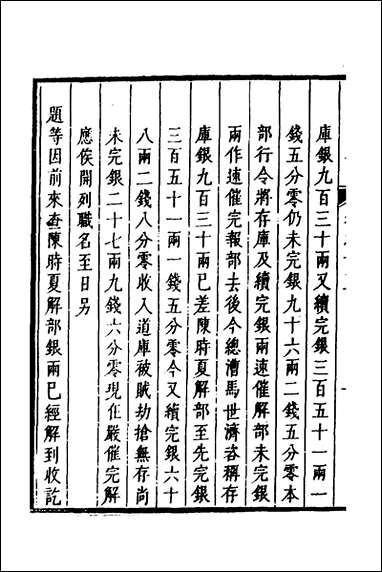 庫銀九百三十兩又續完銀三百五十一兩一
錢五分零仍未完銀九十六兩二錢五分零本
部行令將存庫及續完銀兩速催解部未完銀
兩作速催完報部去後今總漕馬世濟咨稱存
庫銀九百三十兩已差陳時夏解部至先完銀
三百五十一兩一錢五分零今又續完銀六十
八兩二錢八分零收入道庫被賊劫搶無存尚
未完銀二十七兩九錢六分零現在嚴催完解
應俟開列職名至日另
題等因前來查陳時夏解部銀兩已經解到收訖